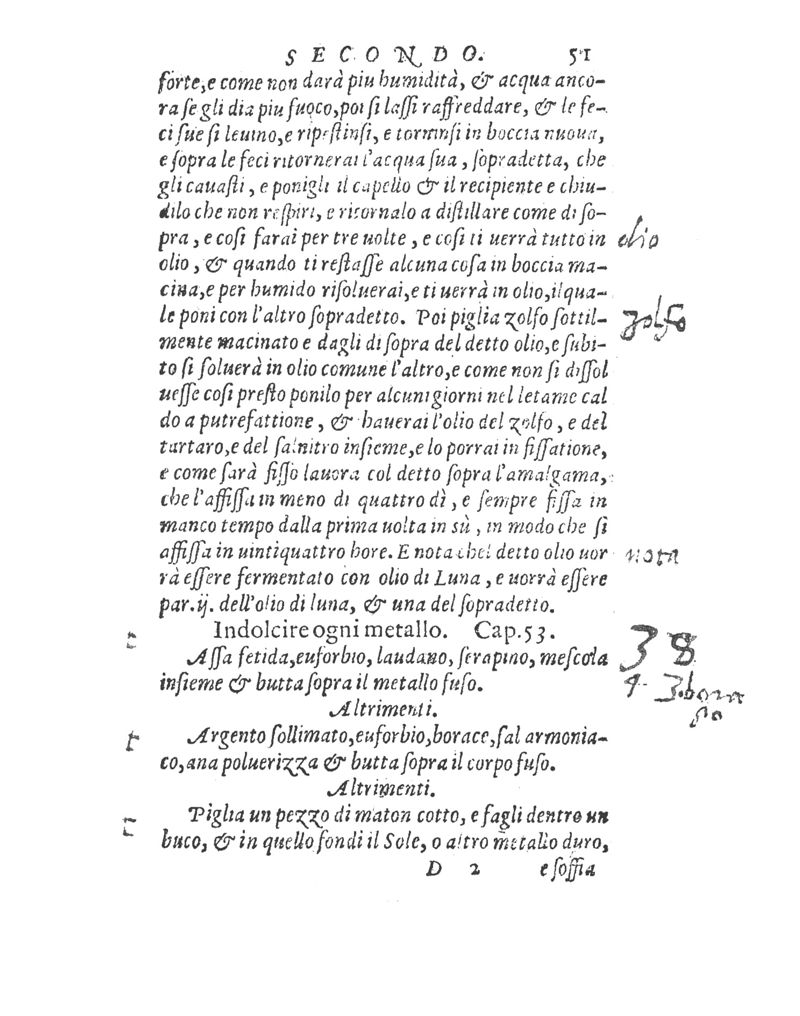 SECONDO. 51
forte, e come non darà piu humidità, & acqua anco-
ra se gli dia piu fuoco, poi si lassi raffreddare, & le fe-
ci sue si leuino, e ripestinsi, e torninsi in boccia nuoua,
e sopra le feci ritornerai l'acqua sua, sopradetta, che
gli cauasti, e ponigli il capello & il recipiente e chiu-
dilo che non respiri, e ritornalo a distillare come di so-
pra, e cosi farai per tre uolte, e cosi ti uerrà tutto in
olio
olio, & quando ti restasse alcuna cosa in boccia ma-
cina, e per humido risoluerai, e ti uerrà in olio, il qua-
le poni con l'altro sopradetto. Poi piglia zolfo sottil-
zolfo
mente macinato e dagli di sopra del detto olio, e subi-
to si soluerà in olio comune l'altro, e come non si dissol
uesse cosi presto ponilo per alcuni giorni nel letame cal
do a putrefattione, & hauerai l'olio del zolfo, e del
tartaro, e del salnitro insieme, e lo porrai in fissatione,
e come sarà fisso lauora col detto sopra l'amalgama,
che l'affissa in meno di quattro dì, e sempre fissa in
manco tempo dalla prima uolta in sù, in modo che si
affissa in uintiquattro hore. E nota chel detto olio uor
nota
rà essere fermentato con olio di Luna, e uorrà essere
par. ij. dell'olio di luna, & una del sopradetto.
Indolcire ogni metallo. Cap. 53.
38
Assa fetida, euforbio, laudano, serapino, mescola
insieme & butta sopra il metallo fuso.
Altrimenti.
Argento sollimato, euforbio, borace, sal armonia-
co, ana poluerizza & butta sopra il corpo fuso.
Altrimenti.
Piglia un pezzo di maton cotto, e fagli dentro un
buco, & in quello fondi il Sole, o altro metallo duro,
D 2 e soffia